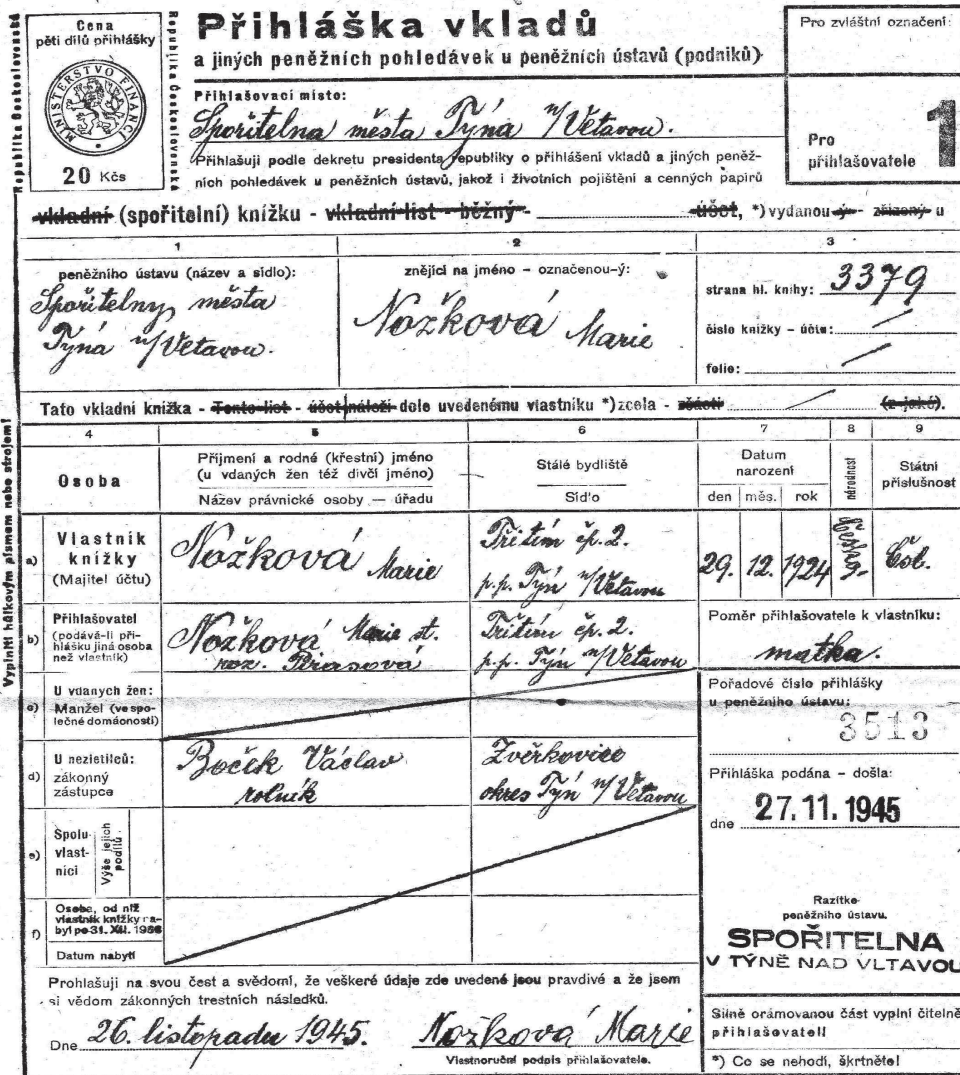 Cena
pěti dílů přihlášky
MINISTERSTVO FINANCÍ
20 Kčs
Republika Československá
Republika Československá
Přihláška vkladů
a jiných peněžních pohledávek u peněžních ústavů (podniků)
Přihlašovací místo:
Spořitelna města Týna n/Vltavou.
Přihlašuji podle dekretu presidenta republiky o přihlášení vkladů a jiných peněž-
ních pohledávek u peněžních ústavů, jakož i životních pojištění a cenných papírů
Pro zvláštní označení:
Pro
přihlašovatele
1
vkladní (spořitelní) knížku - vkladní list - běžný - účet, *) vydanou-ý - zřízený u
1
2
3
peněžního ústavu (název a sídlo):
Spořitelny města
Týna n/Vltavou.
znějící na jméno - označenou-ý:
Nožková Marie
strana hl. knihy: 3379
číslo knížky - účtu:
folie:
Tato vkladní knížka - Tento list - účet náleží dole uvedenému vlastníku *) zcela - zčásti (z jaké).
Vyplniti hůlkovým písmem nebo strojem!
4
5
6
7
8
9
Osoba
Příjmení a rodné (křestní) jméno
(u vdaných žen též dívčí jméno)
Název právnické osoby — úřadu
Stálé bydliště
Sídlo
Datum
narození
den
měs.
rok
národnost
Státní
příslušnost
a)
Vlastník
knížky
(Majitel účtu)
Nožková Marie
Třitim čp. 2.
p.p. Týn n/Vltavou
29. 12. 1924
česká
Čsl.
b)
Přihlašovatel
(podává-li při-
hlášku jiná osoba
než vlastník)
Nožková Marie st.
roz.
Třitim čp. 2.
p.p. Týn n/Vltavou
Poměr přihlašovatele k vlastníku:
matka.
c)
U vdaných žen:
Manžel (ve spo-
lečné domácnosti)
Pořadové číslo přihlášky
u peněžního ústavu:
3513
d)
U nezletilců:
zákonný
zástupce
Boček Václav
rolník
Zvěrkovice
okres Týn n/Vltavou
Přihláška podána - došla:
dne 27. 11. 1945
e)
Spolu-
vlast-
níci
Výše jejich
podílů
f)
Osoba, od níž
vlastník knížky na-
byl po 31. XII. 1938
Datum nabytí
Razítko
peněžního ústavu.
SPOŘITELNA
V TÝNĚ NAD VLTAVOU
Prohlašuji na svou čest a svědomí, že veškeré údaje zde uvedené jsou pravdivé a že jsem
si vědom zákonných trestních následků.
Dne 26. listopadu 1945. Nožková Marie
Vlastnoruční podpis přihlašovatele.
Silně orámovanou část vyplní čitelně
přihlašovatel!
*) Co se nehodí, škrtněte!